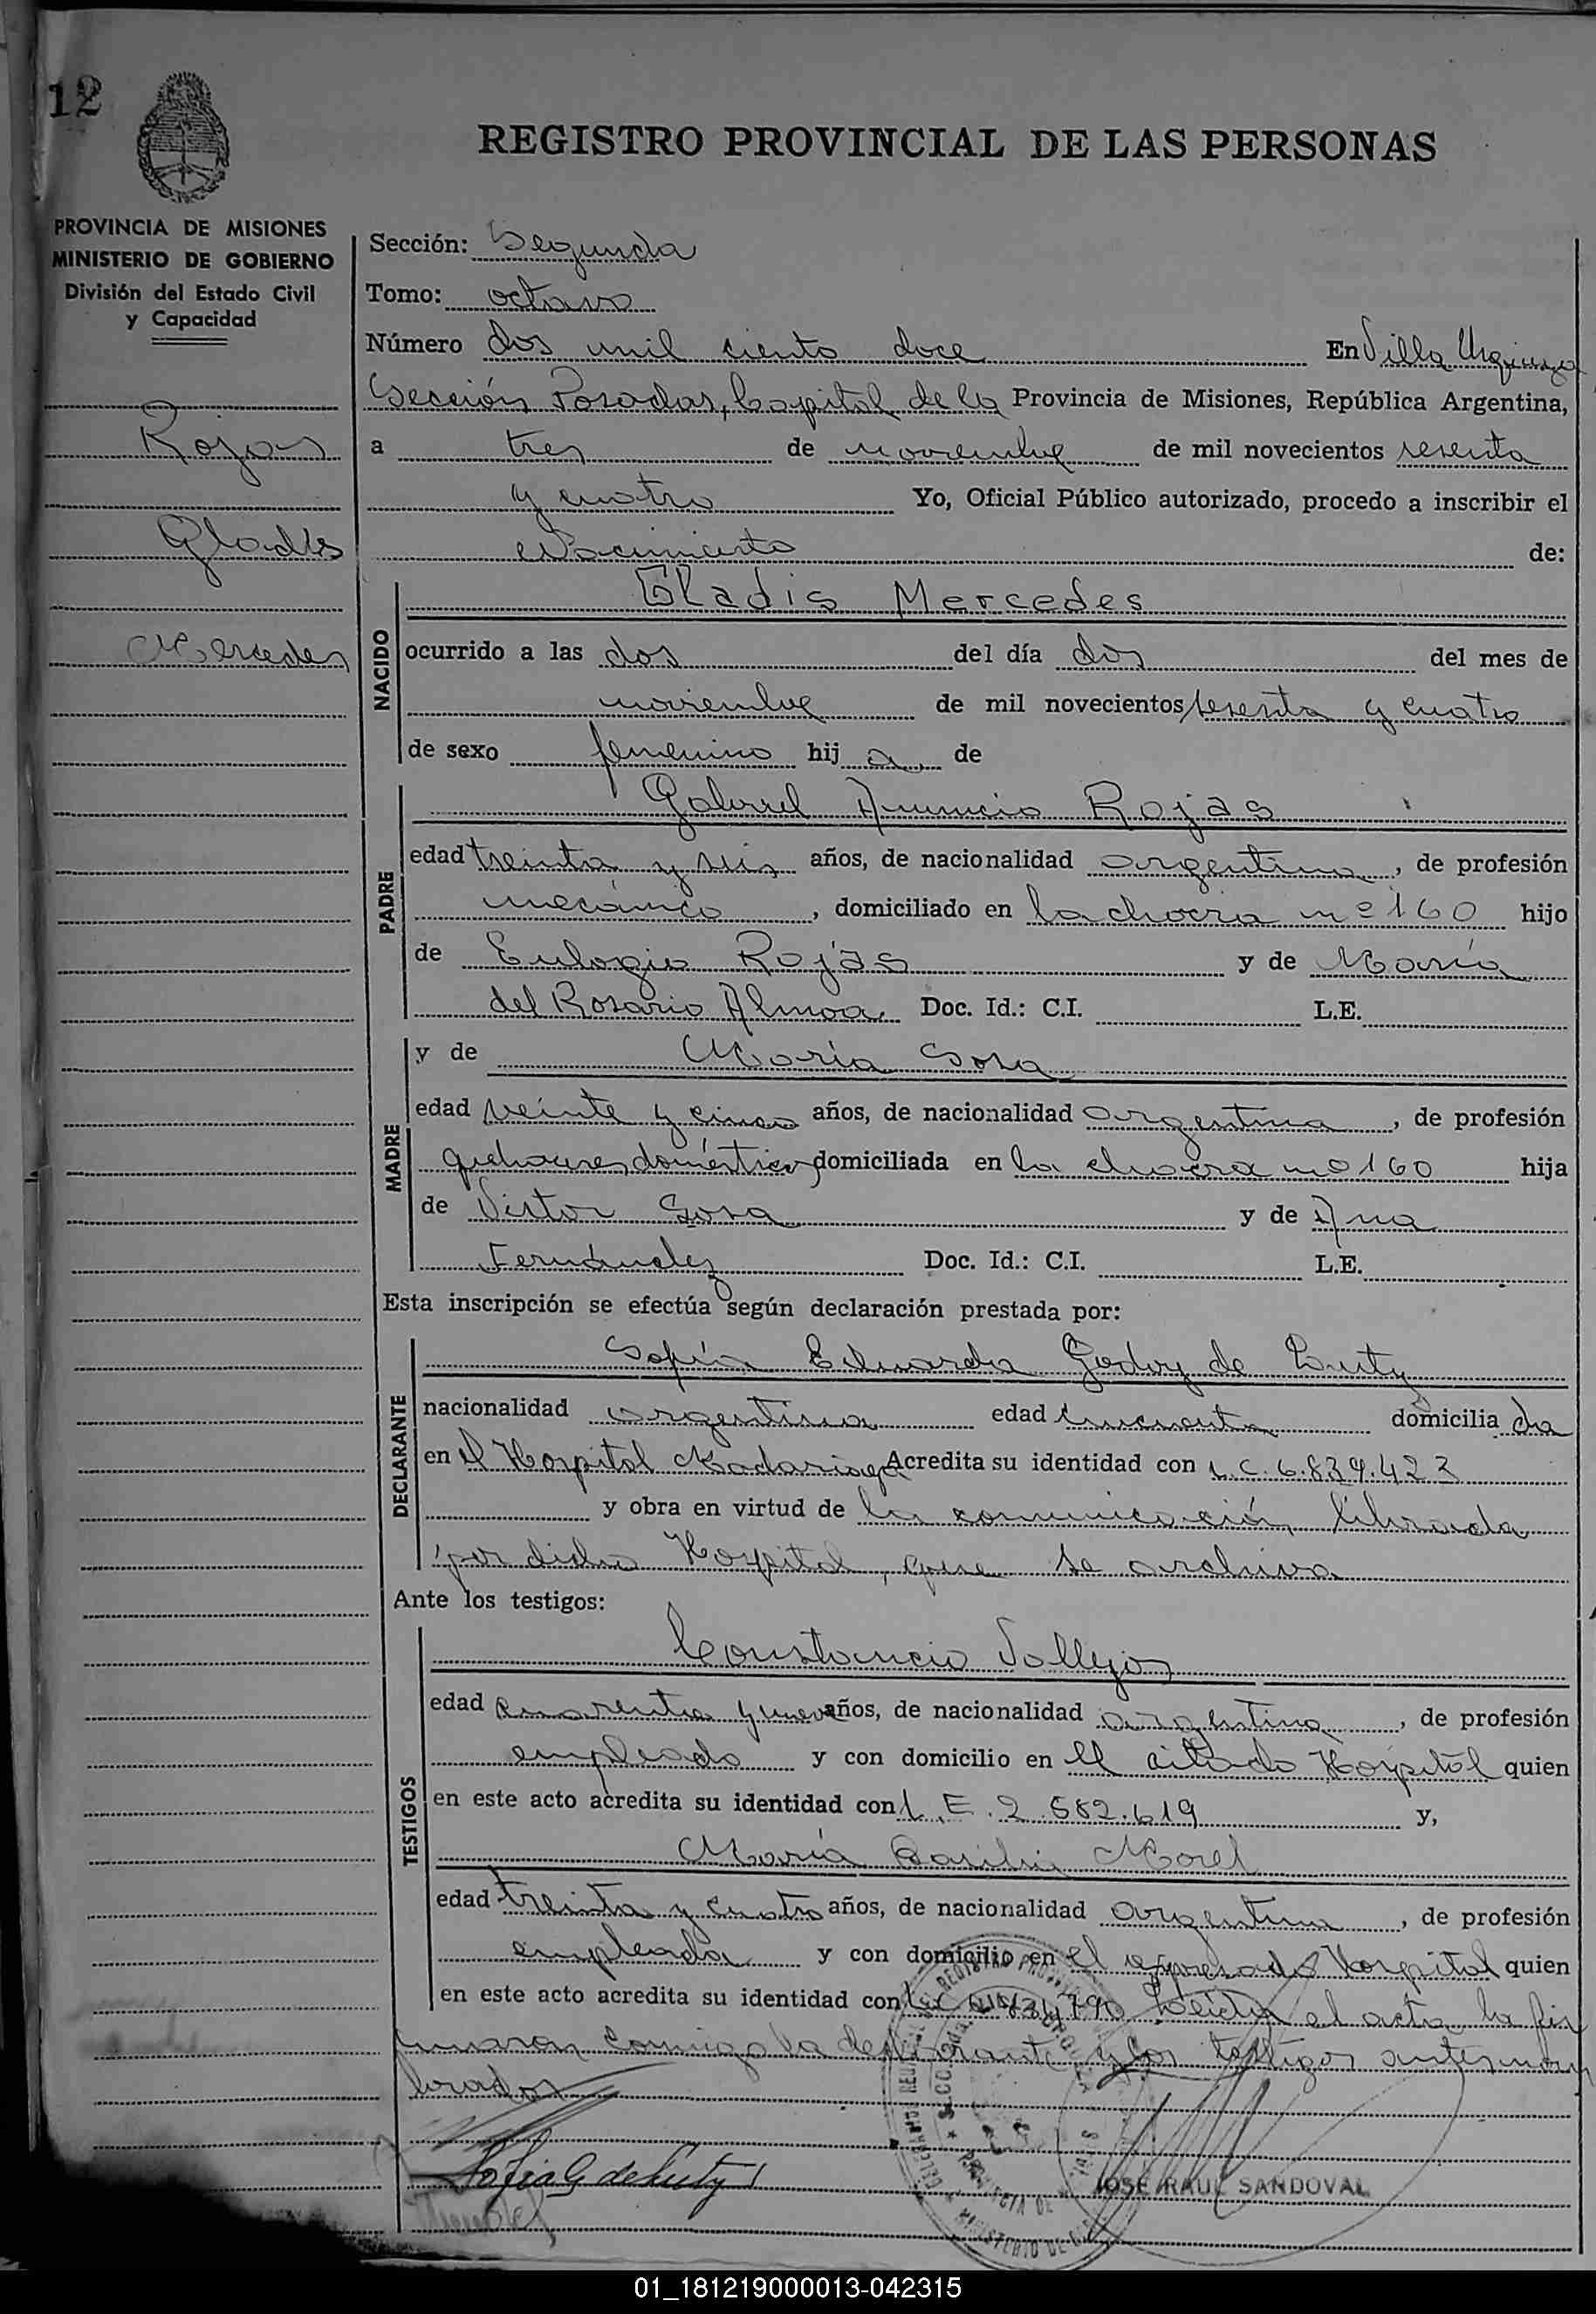 12
REGISTRO PROVINCIAL DE LAS PERSONAS
PROVINCIA DE MISIONES
MINISTERIO DE GOBIERNO
División del Estado Civil
y Capacidad
Rojas
Gladis
Mercedes
Sección: Segunda
Tomo: octavo
Número dos mil ciento doce En Villa Urquiza
Sección Posadas, Capital de la Provincia de Misiones, República Argentina,
a tres de noviembre de mil novecientos sesenta
y cuatro Yo, Oficial Público autorizado, procedo a inscribir el
Nacimiento de:
NACIDO
Gladis Mercedes
ocurrido a las dos del día dos del mes de
noviembre de mil novecientos sesenta y cuatro
de sexo femenino hij a de
PADRE
Gabriel Anuncio Rojas
edad treinta y seis años, de nacionalidad argentina, de profesión
mecánico, domiciliado en la chacra nº 160 hijo
de Eulogio Rojas y de María
del Rosario Doc. Id.: C.I. L.E.
MADRE
y de María Sosa
edad veinte y cinco años, de nacionalidad argentina, de profesión
quehaceres domésticos domiciliada en la chacra nº 160 hija
de Victor Sosa y de Ana
Fernández Doc. Id.: C.I. L.E.
Esta inscripción se efectúa según declaración prestada por:
DECLARANTE
Sofía Eduarda Godoy de
nacionalidad argentina edad cincuenta domicilia da
en el Hospital Madariaga Acredita su identidad con L.C. 6.839.423
y obra en virtud de la comunicación librada
por dicho Hospital, que se archiva
Ante los testigos:
TESTIGOS
Constancio Vallejos
edad cuarenta y nueve años, de nacionalidad argentina, de profesión
empleado y con domicilio en el citado Hospital quien
en este acto acredita su identidad con L.E. 2.582.619 y,
María Basilia Morel
edad treinta y cuatro años, de nacionalidad argentina, de profesión
empleada y con domicilio en el expresado Hospital quien
en este acto acredita su identidad con Leída el acta la fir
maron conmigo la declarante y los testigos antesnom
brados
JOSÉ RAUL SANDOVAL
01_181219000013-042315